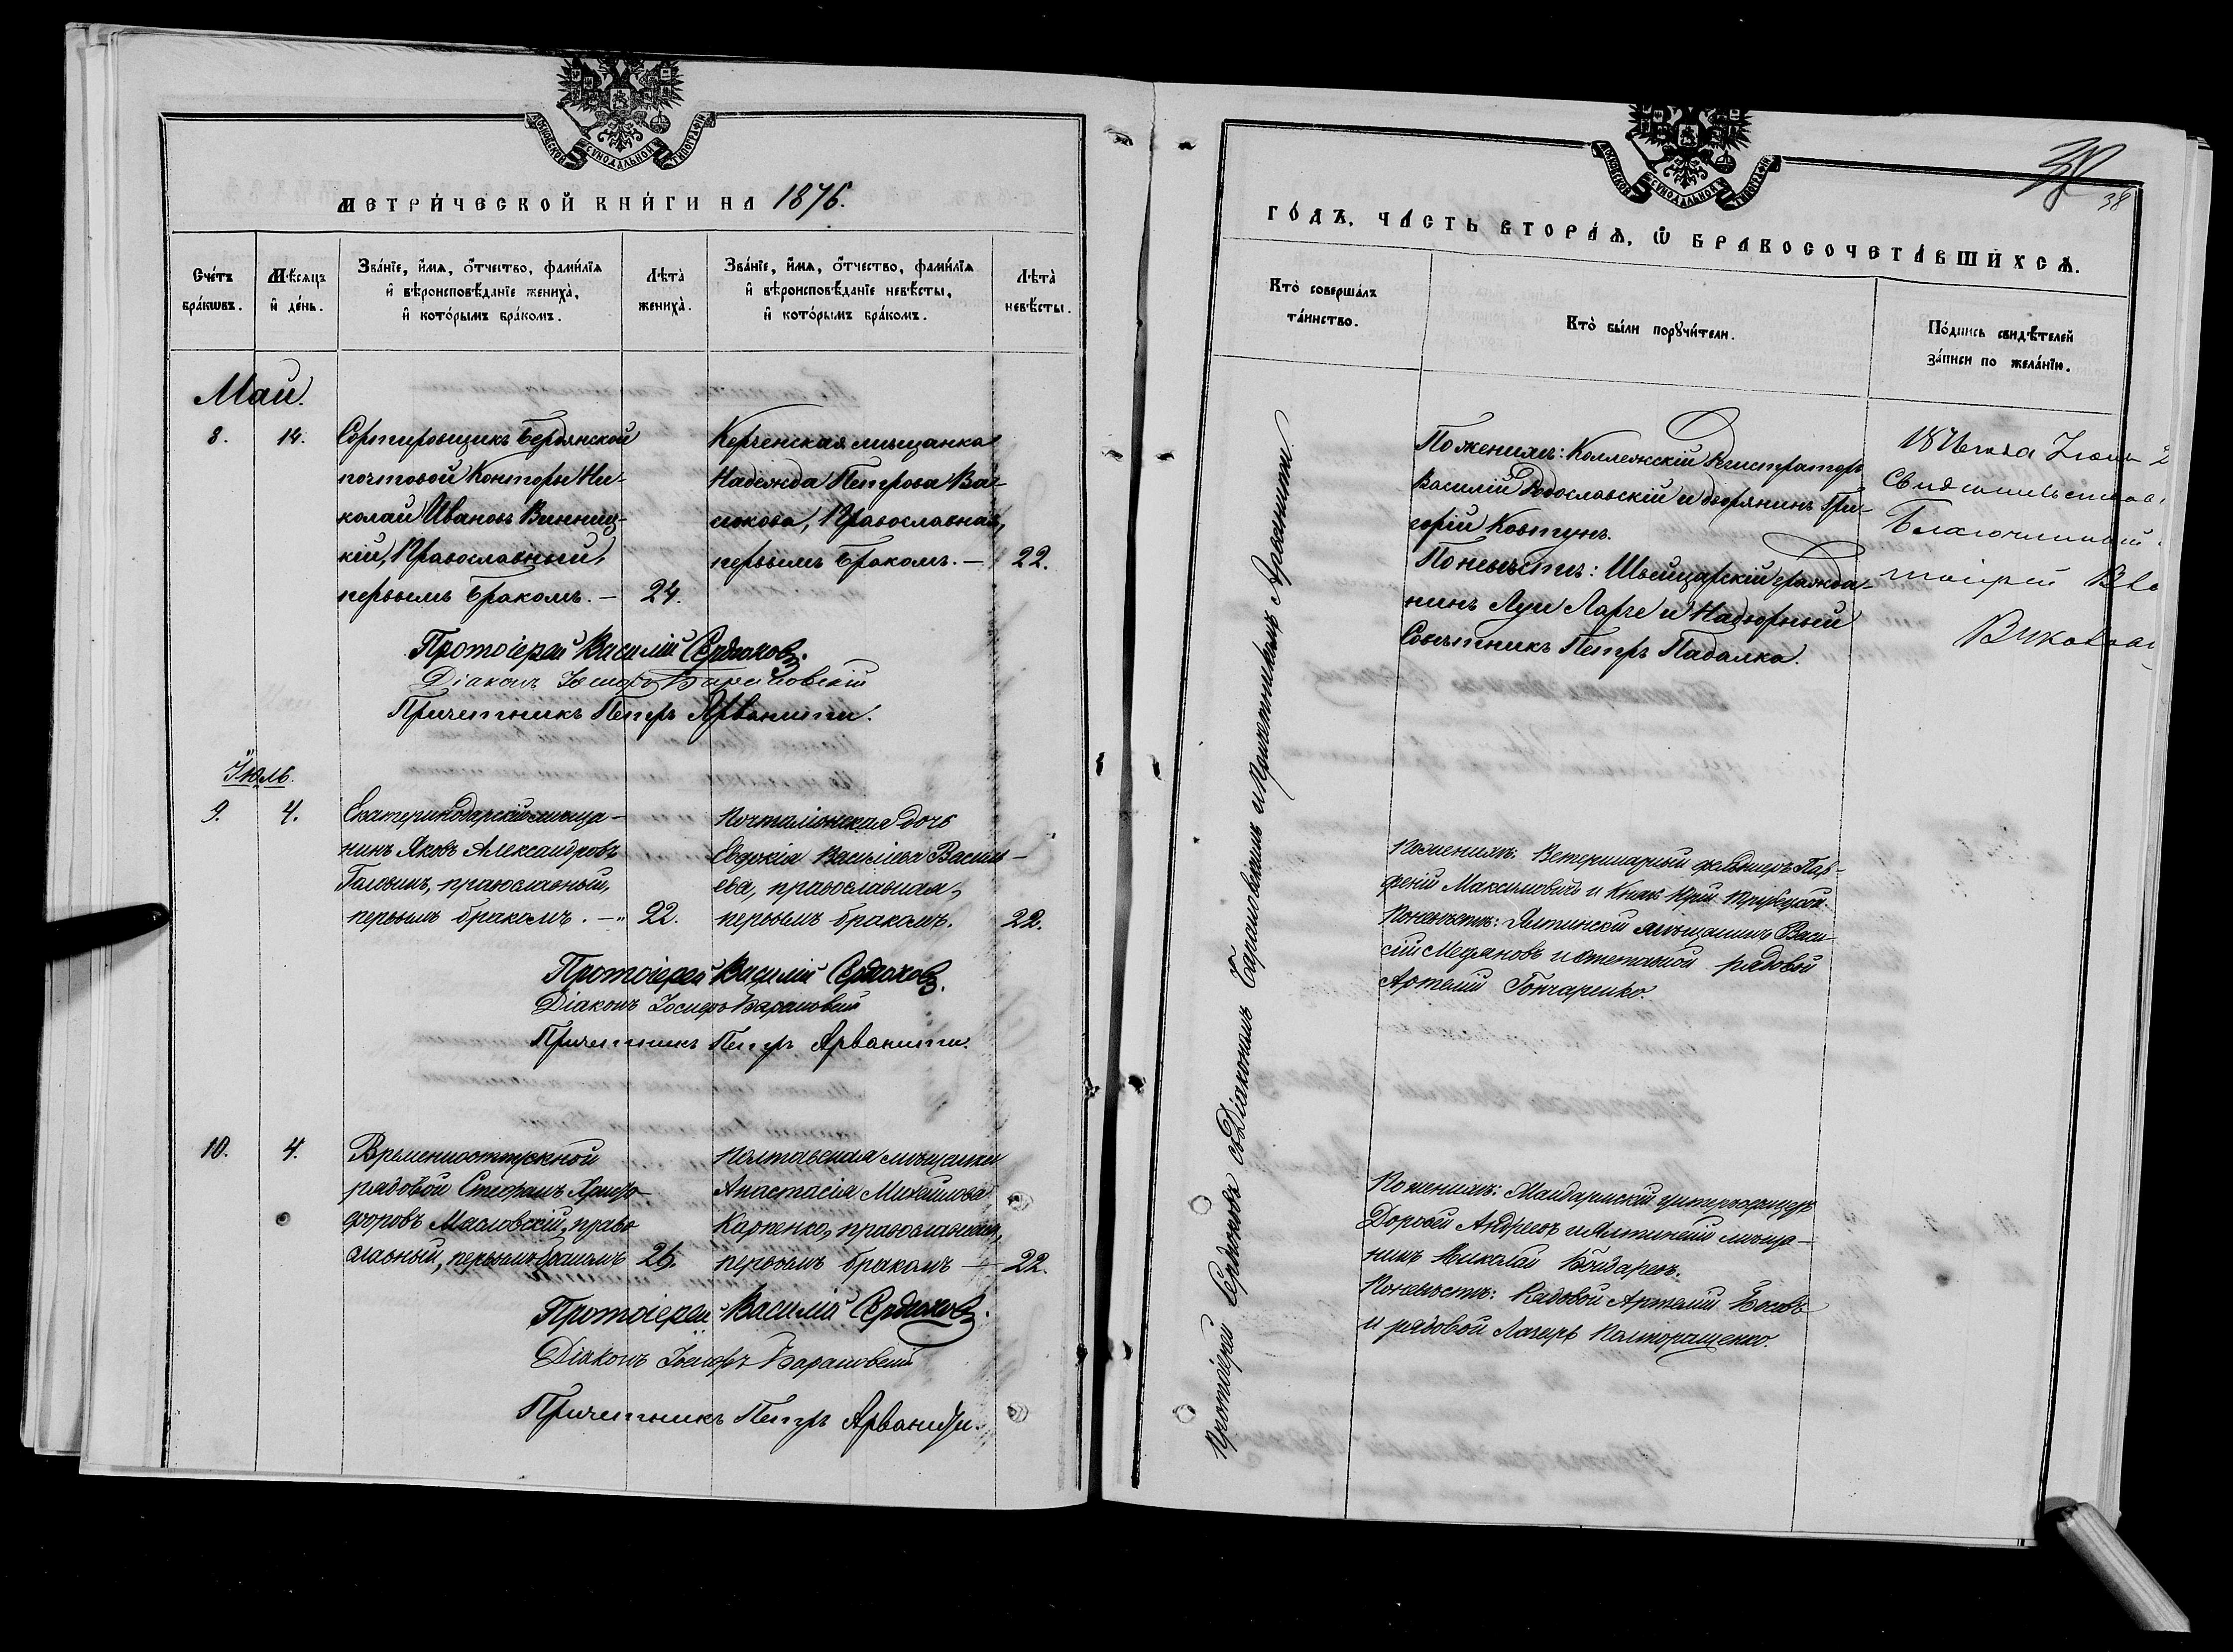 МОСКОВСКОЙ СУНОДАЛЬНОЙ ТИПОГРАФІИ
МЕТРИ́ЧЕСКОЙ КНИ́ГИ НА 1876.
Сче́тъ бра́кѡвъ.
Мѣ́сяцъ и҆ де́нь.
Зва́нїе, и҆́мя, ѻ҆́тчество, фами́лїя
и҆ вѣроисповѣ́данїе жениха̀,
и҆ кото́рымъ бра́комъ.
Лѣ́та̀ жениха̀.
Зва́нїе, и҆́мя, ѻ҆́тчество, фами́лїя
и҆ вѣроисповѣ́данїе невѣ́сты,
и҆ кото́рымъ бра́комъ.
Лѣ́та̀ невѣ́сты.
Май.
8. 14.
Сортировщикъ Бердянской
почтовой Конторы Ни-
колай Ивановъ Винниц-
кій, Православный,
первымъ бракомъ. — 24.
Керченская мѣщанка
Надежда Петрова Ва-
сюкова, Православная,
первымъ бракомъ. — 22.
Протоіерей Василій Сердюковъ.
Діаконъ Іосифъ Барановскій
Причетникъ Петръ Арванити.
Іюль.
9. 4.
Екатеринодарскій мѣща-
нинъ Яковъ Александровъ
Головинъ, православный,
первымъ бракомъ. — 22.
Почталіонская дочь
Евдокія Васильева Василь-
ева, православная,
первымъ бракомъ. 22.
Протоіерей Василій Сердюковъ.
Діаконъ Іосифъ Барановскій
Причетникъ Петръ Арванити.
10. 4.
Временноотпускной
рядовой Стефанъ Христо-
форовъ Масловскій, право-
славный, первымъ бракомъ 26.
Полтавская мѣщанка
Анастасія Михайлова
Карпенко, православная,
первымъ бракомъ — 22.
Протоіерей Василій Сердюковъ.
Діаконъ Іосифъ Барановскій
Причетникъ Петръ Арванити.
МОСКОВСКОЙ СУНОДАЛЬНОЙ ТИПОГРАФІИ
38
ГО́ДЪ, ЧА́СТЬ ВТОРА́Ѧ, Ѡ҆ БРАКОСОЧЕТА́ВШИХСѦ.
Кто̀ соверша́лъ
та́инство.
Кто̀ бы́ли порꙋчи́тели.
По́дпись свидѣ́телей
за́писи по жела́нїю.
Протоіерей Сердюковъ съ Діакономъ Барановскимъ и Причетникомъ Арванити.
По женихѣ: Коллежскій Регистраторъ
Василій Добославскій и дворянинъ Гри-
горій Ковтунъ.
По невѣстѣ: Швейцарскій гражда-
нинъ Луи Ларче и Надворный
Совѣтникъ Петръ Падалка.
1876 года Іюля 2
Свидѣтельствова
Благочинный
По женихѣ: Ветеринарный фельдшеръ Пар-
феній Максимовичъ и Князь Юрій Трубецкой.
По невѣстѣ: Ялтинскій мѣщанинъ Васи-
лій и отставной рядовой
Артемій Гончаренко.
По женихѣ: Жандармскій унтерофицеръ
Дорофей Андреевъ и Ялтинскій мѣща-
нинъ Николай Бондаревъ.
По невѣстѣ: Рядовой Артемій
и рядовой Лазарь